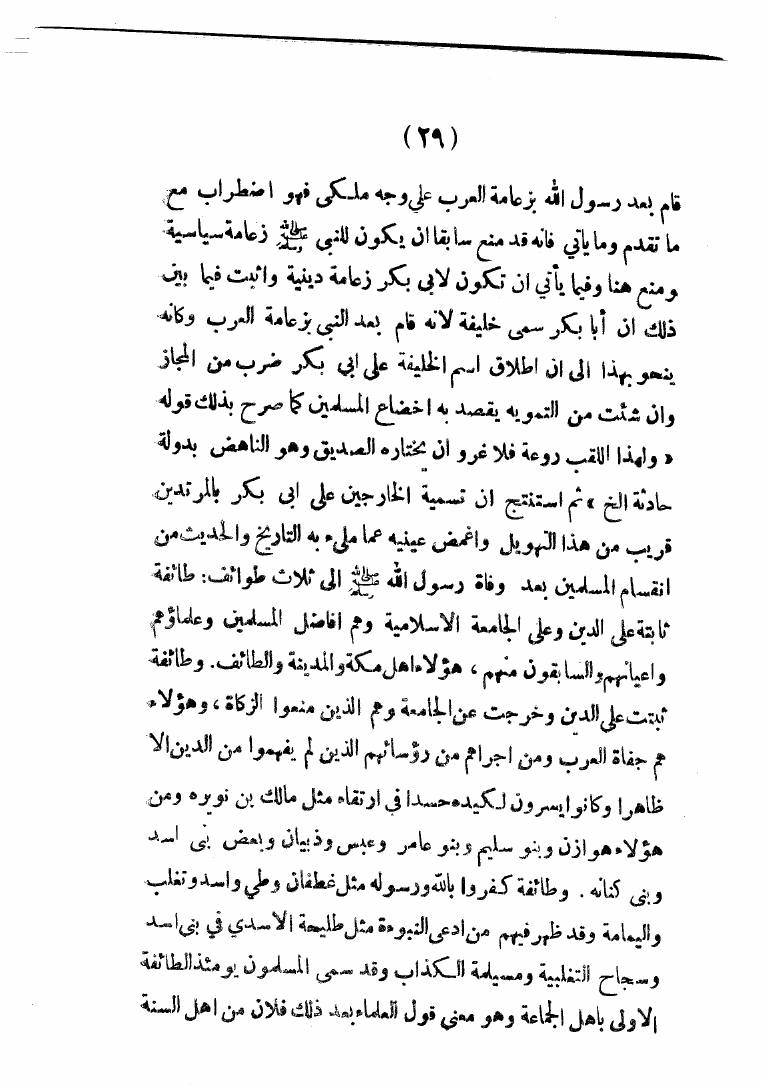 (٢٩)
قام بعد رسول الله بزعامة العرب على وجه ملكى فهو اضطراب مع
ما تقدم وما يأتي فانه قد منع سابقا ان يكون للنبي ﷺ زعامة سياسية
ومنع هنا وفيما يأتي ان تكون لابي بكر زعامة دينية واثبت فيما بين
ذلك ان أبا بكر سمى خليفة لانه قام بعد النبي بزعامة العرب وكانه
ينحو بهذا الى ان اطلاق اسم الخليفة على ابي بكر ضرب من المجاز
وان شئت من التمويه يقصد به اخضاع المسلمين كما صرح بذلك قوله
« ولهذا اللقب روعة فلا غرو ان يختاره الصديق وهو الناهض بدولة
حادثة الخ » ثم استنتج ان تسمية الخارجين على ابى بكر بالمرتدين
قريب من هذا التهويل واغمض عينيه عما مليء به التاريخ والحديث من
انقسام المسلمين بعد وفاة رسول الله ﷺ الى ثلاث طوائف: طائفة
ثابتة على الدين وعلى الجامعة الاسلامية وهم افاضل المسلمين وعلماؤهم
واعيانهم والسابقون منهم ، هؤلاء اهل مكة والمدينة والطائف. وطائفة
ثبتت على الدين وخرجت عن الجامعة وهم الذين منعوا الزكاة ، وهؤلاء
هم جفاة العرب ومن اجراهم من رؤسائهم الذين لم يفهموا من الدين الا
ظاهرا وكانوا يسرون لكيده حسدا في ارتقاء مثل مالك بن نويره ومن
هؤلاء هوازن وبنو سليم وبنو عامر وعبس وذبيان وبعض بنى اسد
وبنى كنانه . وطائفة كفروا بالله ورسوله مثل غطفان وطي واسد وتغلب
واليمامة وقد ظهر فيهم من ادعى النبوءة مثل طليحة الاسدي في بني اسد
وسجاح التغلبية ومسيلمة الكذاب وقد سمى المسلمون يومئذ الطائفة
الاولى باهل الجماعة وهو معنى قول العلماء بعد ذلك فلان من اهل السنة